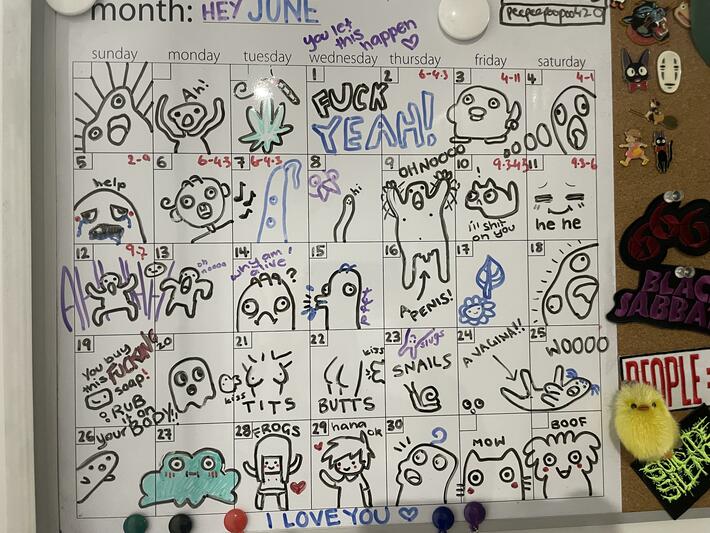 month: HEY JUNE
peepeepoopoo420
you let
this happen
sunday monday tuesday wednesday thursday friday saturday
Ah!
1
FUCK
YEAH!
2 6-4.3
3 4-11
4 4-1
5 2-9
help
6 6-4.3
7 6-4.3
8
hi
9
OHNOOOO
10 9-3
!
i'll shit
on you
11 9.3-6
he he
12 9-7
AHHH
13
oh
noooo
14
why am i
alive
?
15
16
A PENIS!
17
18
19
You buy
this FUCKING
soap!
RUB
it on
your BODY!!
20
kiss
21
TITS
22
kiss
BUTTS
23
slugs
SNAILS
24
A VAGINA!!
25
WOOOO
26
27
28
FROGS
29
hana
ok
30
MOW
BOOF
I LOVE YOU
666
BLACK
SABBATH
PEOPLE =